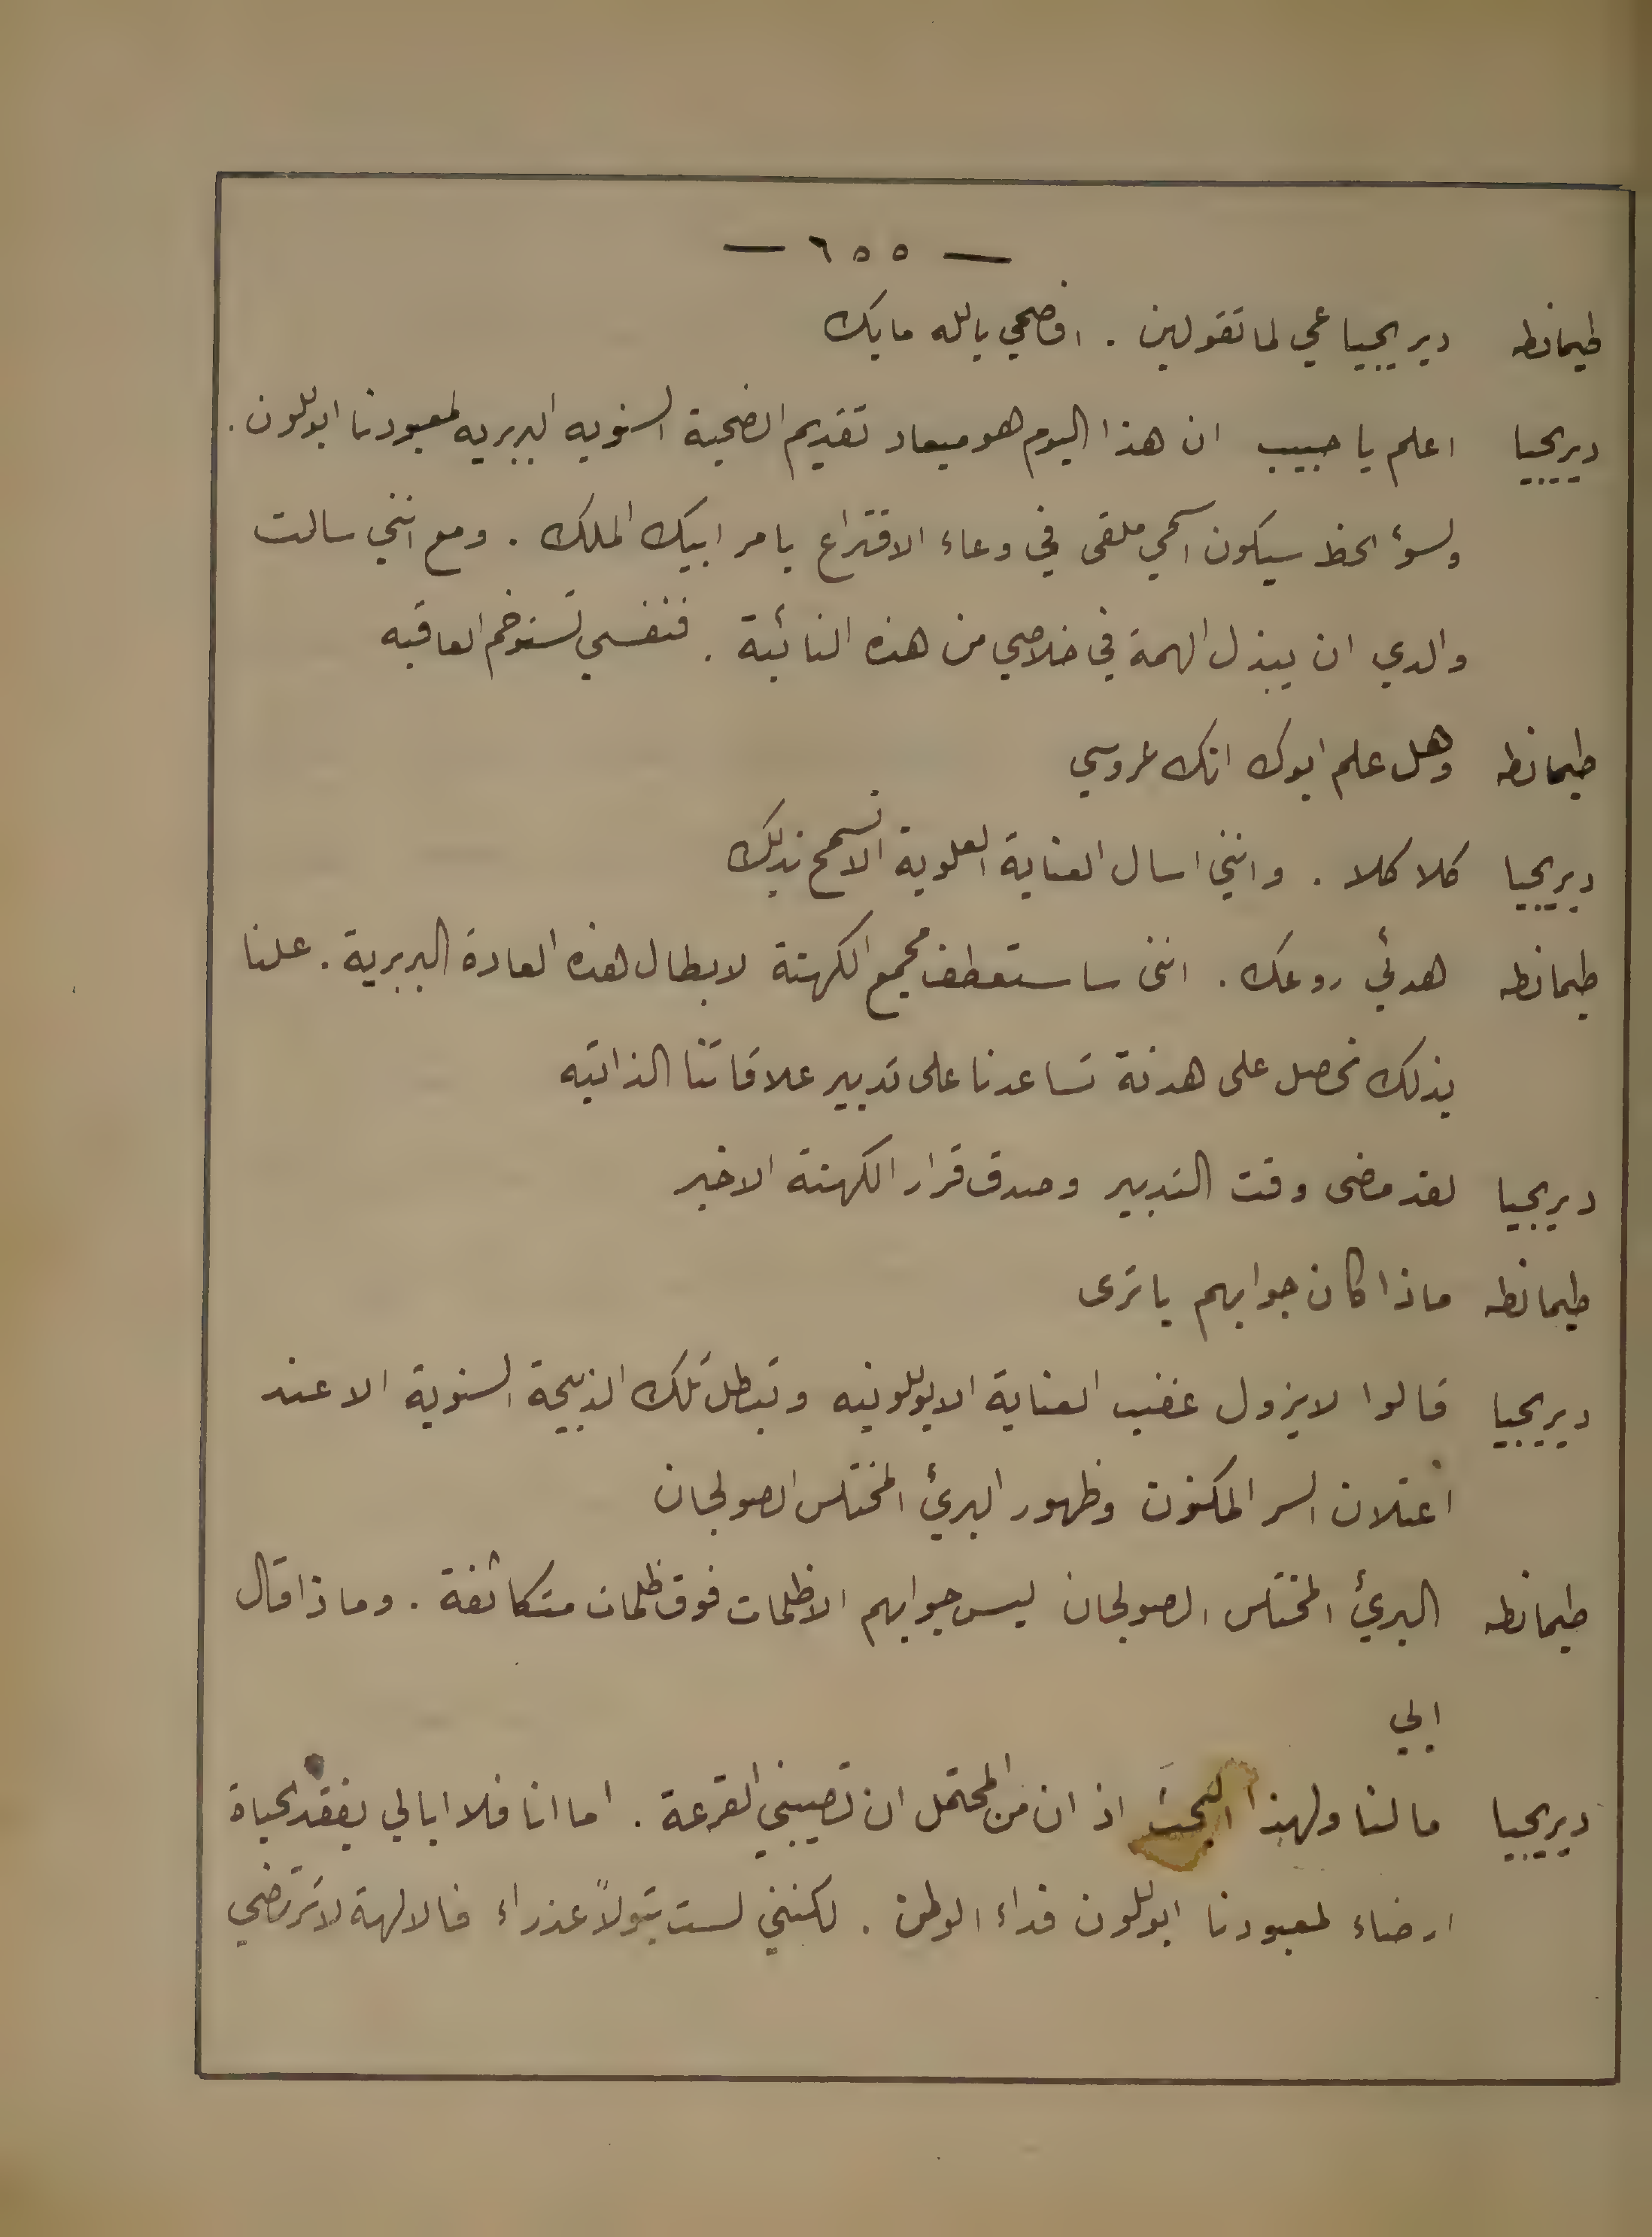 — ٦٥٥ —
طيمانطه ديريجيا عي لما تقولين . افصحي بالله مابك
ديريجيا اعلم يا حبيب ان هذا اليوم هو ميعاد تقديم الضحية السنويه البربريه لمعبودنا ابوللون .
ولسؤ الحظ سيكون اسمي ملقى في وعاء الاقتراع بامر ابيك الملك . ومع انني سالت
والدي ان يبذل الهمة في خلاصي من هذه النائبة . فنفسي تستوخم العاقبه
طيمانطه وهل علم ابوك انك عروسي
ديريجيا كلا كلا . وانني اسال العناية العلوية الا تسمح بذلك
طيمانطه هدئي روعك . انني ساستعطف مجمع الكهنة لابطال هذه العادة البربرية . علنا
بذلك نحصل على هدنة تساعدنا على تدبير علاقاتنا الذاتيه
ديريجيا لقد مضى وقت التدبير وصدق قرار الكهنة الاخير
طيمانطه ماذا كان جوابهم يا ترى
ديريجيا قالوا لا يزول غضب العناية الابوللونيه وتبطل تلك الذبيحة السنوية الا عند
اعتلان السر المكنون وظهور البرئ المختلس الصولجان
طيمانطه البرئ المختلس الصولجان ليس جوابهم الا ظلمات فوق ظلمات متكاثفة . وماذا قال
ابي
ديريجيا ما لنا ولهذا البحث اذ ان من المحتمل ان تصيبني القرعة . اما انا فلا ابالي بفقد الحياة
ارضاء لمعبودنا ابوللون فداء الوطن . لكنني لست بتولاً عذراء فالالهة لا ترتضي